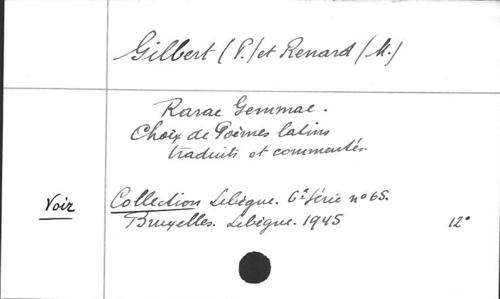 Gilbert (P.) et Renard (M.)
Rarae Gemmae.
Choix de Poèmes latins
traduits et commentés.
Voir Collection Lebègue. 6e Série no 65.
Bruxelles. Lebègue. 1945 12°